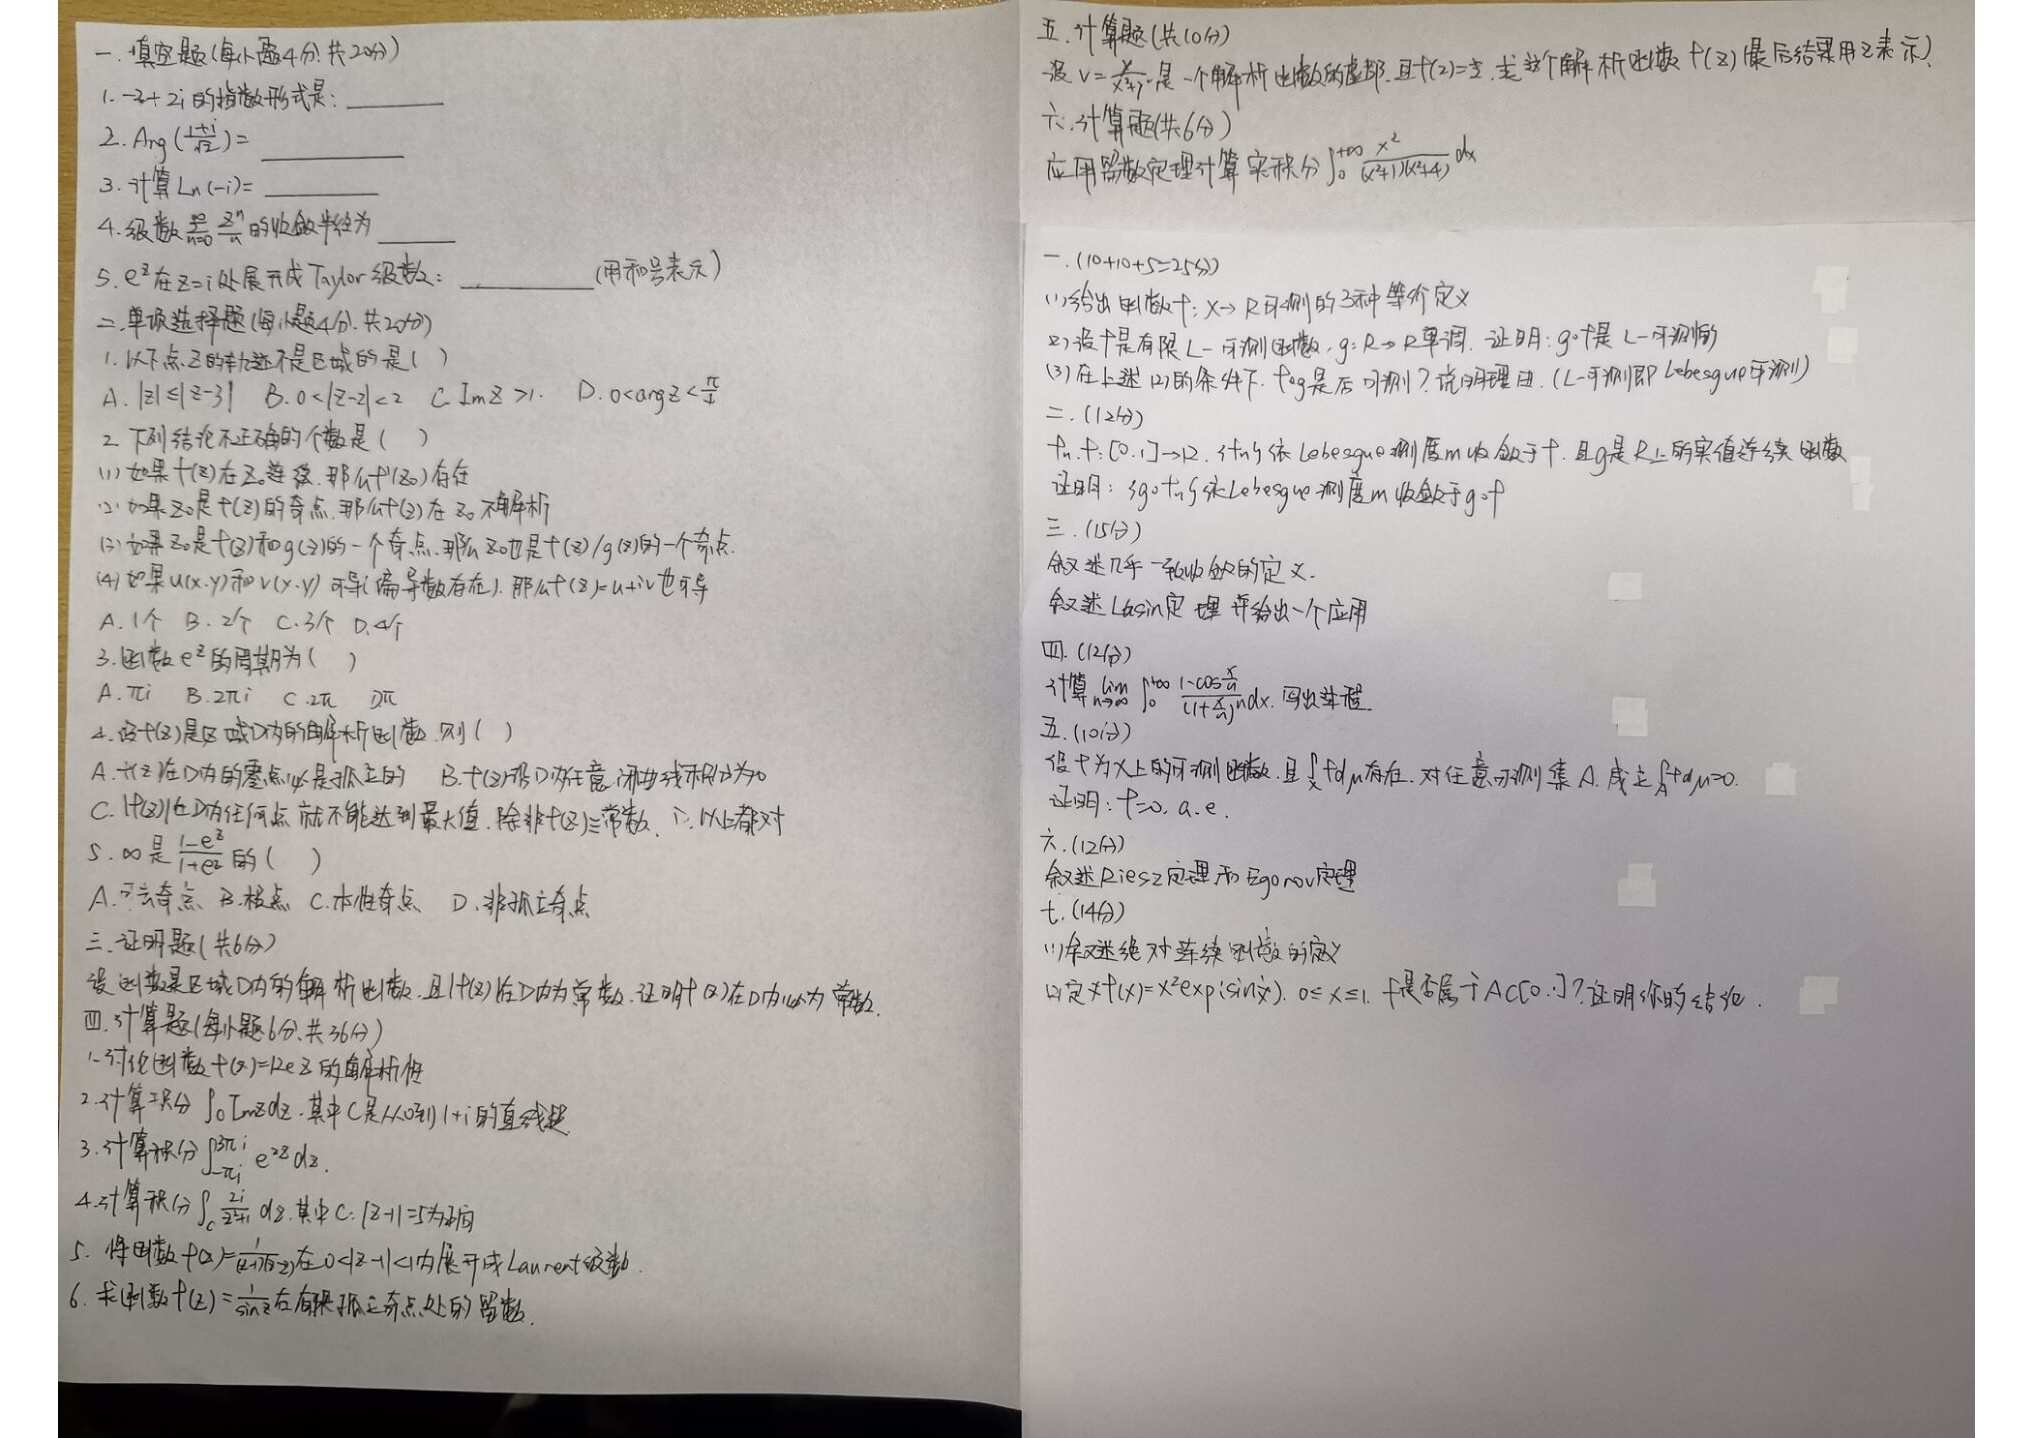 一. 填空题(每小题4分.共20分)
1. -3+2i的指数形式是: ______
2. Arg(\frac{1+i}{\sqrt{2}})= ______
3. 计算Ln(-i)= ______
4. 级数\sum_{n=0}^{∞}\frac{z^n}{n}的收敛半径为 ______
5. e^z在z=i处展开成Taylor级数: ______ (用和号表示)
二. 单项选择题(每小题4分.共20分)
1. 以下点Z的轨迹不是区域的是( )
A. |z|≤|z-3| B. 0<|z-2|<2 C. Imz>1. D. 0<argz<\frac{π}{4}
2. 下列结论不正确的个数是( )
(1) 如果f(z)在z₀连续.那么f'(z₀)存在
(2) 如果z₀是f(z)的奇点.那么f(z)在z₀不解析
(3) 如果z₀是f(z)和g(z)的一个奇点.那么z₀也是f(z)/g(z)的一个奇点.
(4) 如果u(x.y)和v(x.y)可导(偏导数存在).那么f(z)=u+iv也可导
A. 1个 B. 2个 C. 3个 D. 4个
3. 函数e^z的周期为( )
A. πi B. 2πi C. 2π D. π
4. 设f(z)是区域D内的解析函数.则( )
A. f(z)在D内的零点必是孤立的 B. f(z)沿D内任意闭曲线积分为0
C. |f(z)|在D内任何点就不能达到最大值.除非f(z)≡常数. D. 以上都对
5. ∞是\frac{1-e^z}{1+e^z}的( )
A. 可去奇点 B. 极点 C. 本性奇点 D. 非孤立奇点
三. 证明题(共6分)
设函数是区域D内的解析函数.且|f(z)|在D内为常数.证明f(z)在D内必为常数.
四. 计算题(每小题6分.共36分)
1. 讨论函数f(z)=Rez的解析性
2. 计算积分∫₀Imzdz.其中C是从0到1+i的直线段
3. 计算积分∫_{-πi}^{3πi} e^{2z}dz.
4. 计算积分∫_C \frac{2i}{z²+1}dz.其中C:|z-1|=5为正向
5. 将函数f(z)=在0<|z-1|<1内展开成Laurent级数.
6. 求函数f(z)=\frac{1}{sinz}在有限孤立奇点处的留数.
五. 计算题(共10分)
设v=是一个解析函数的虚部.且f(2)=.求这个解析函数f(z)(最后结果用z表示).
六. 计算题(共6分)
应用留数定理计算实积分∫_0^{+∞}\frac{x²}{(x²+1)(x²+4)}dx
一. (10+10+5=25分)
(1) 给出函数f: X→R可测的3种等价定义
(2) 设f是有限L-可测函数, g: R→R单调. 证明: g∘f是L-可测的
(3) 在上述(2)的条件下. f∘g是否可测? 说明理由. (L-可测即Lebesgue可测)
二. (12分)
fn. f: [0.1]→R. {fn}依Lebesgue测度m收敛于f. 且g是R上的实值连续函数
证明: {g∘fn}依Lebesgue测度m收敛于g∘f
三. (15分)
叙述几乎一致收敛的定义.
叙述Lusin定理并给出一个应用
四. (12分)
计算\lim_{n→∞}∫_0^{+∞}\frac{1-cos\frac{x}{n}}{(1+\frac{x}{n})^n}dx. 写出过程.
五. (10分)
设f为X上的可测函数. 且∫_X fdμ存在. 对任意可测集A. 成立∫_A fdμ=0.
证明: f=0. a.e.
六. (12分)
叙述Riesz定理和Egorov定理
七. (14分)
(1) 叙述绝对连续函数的定义
(2) 定义f(x)=x²exp(sin). 0≤x≤1. f是否属于AC[0.1]? 证明你的结论.